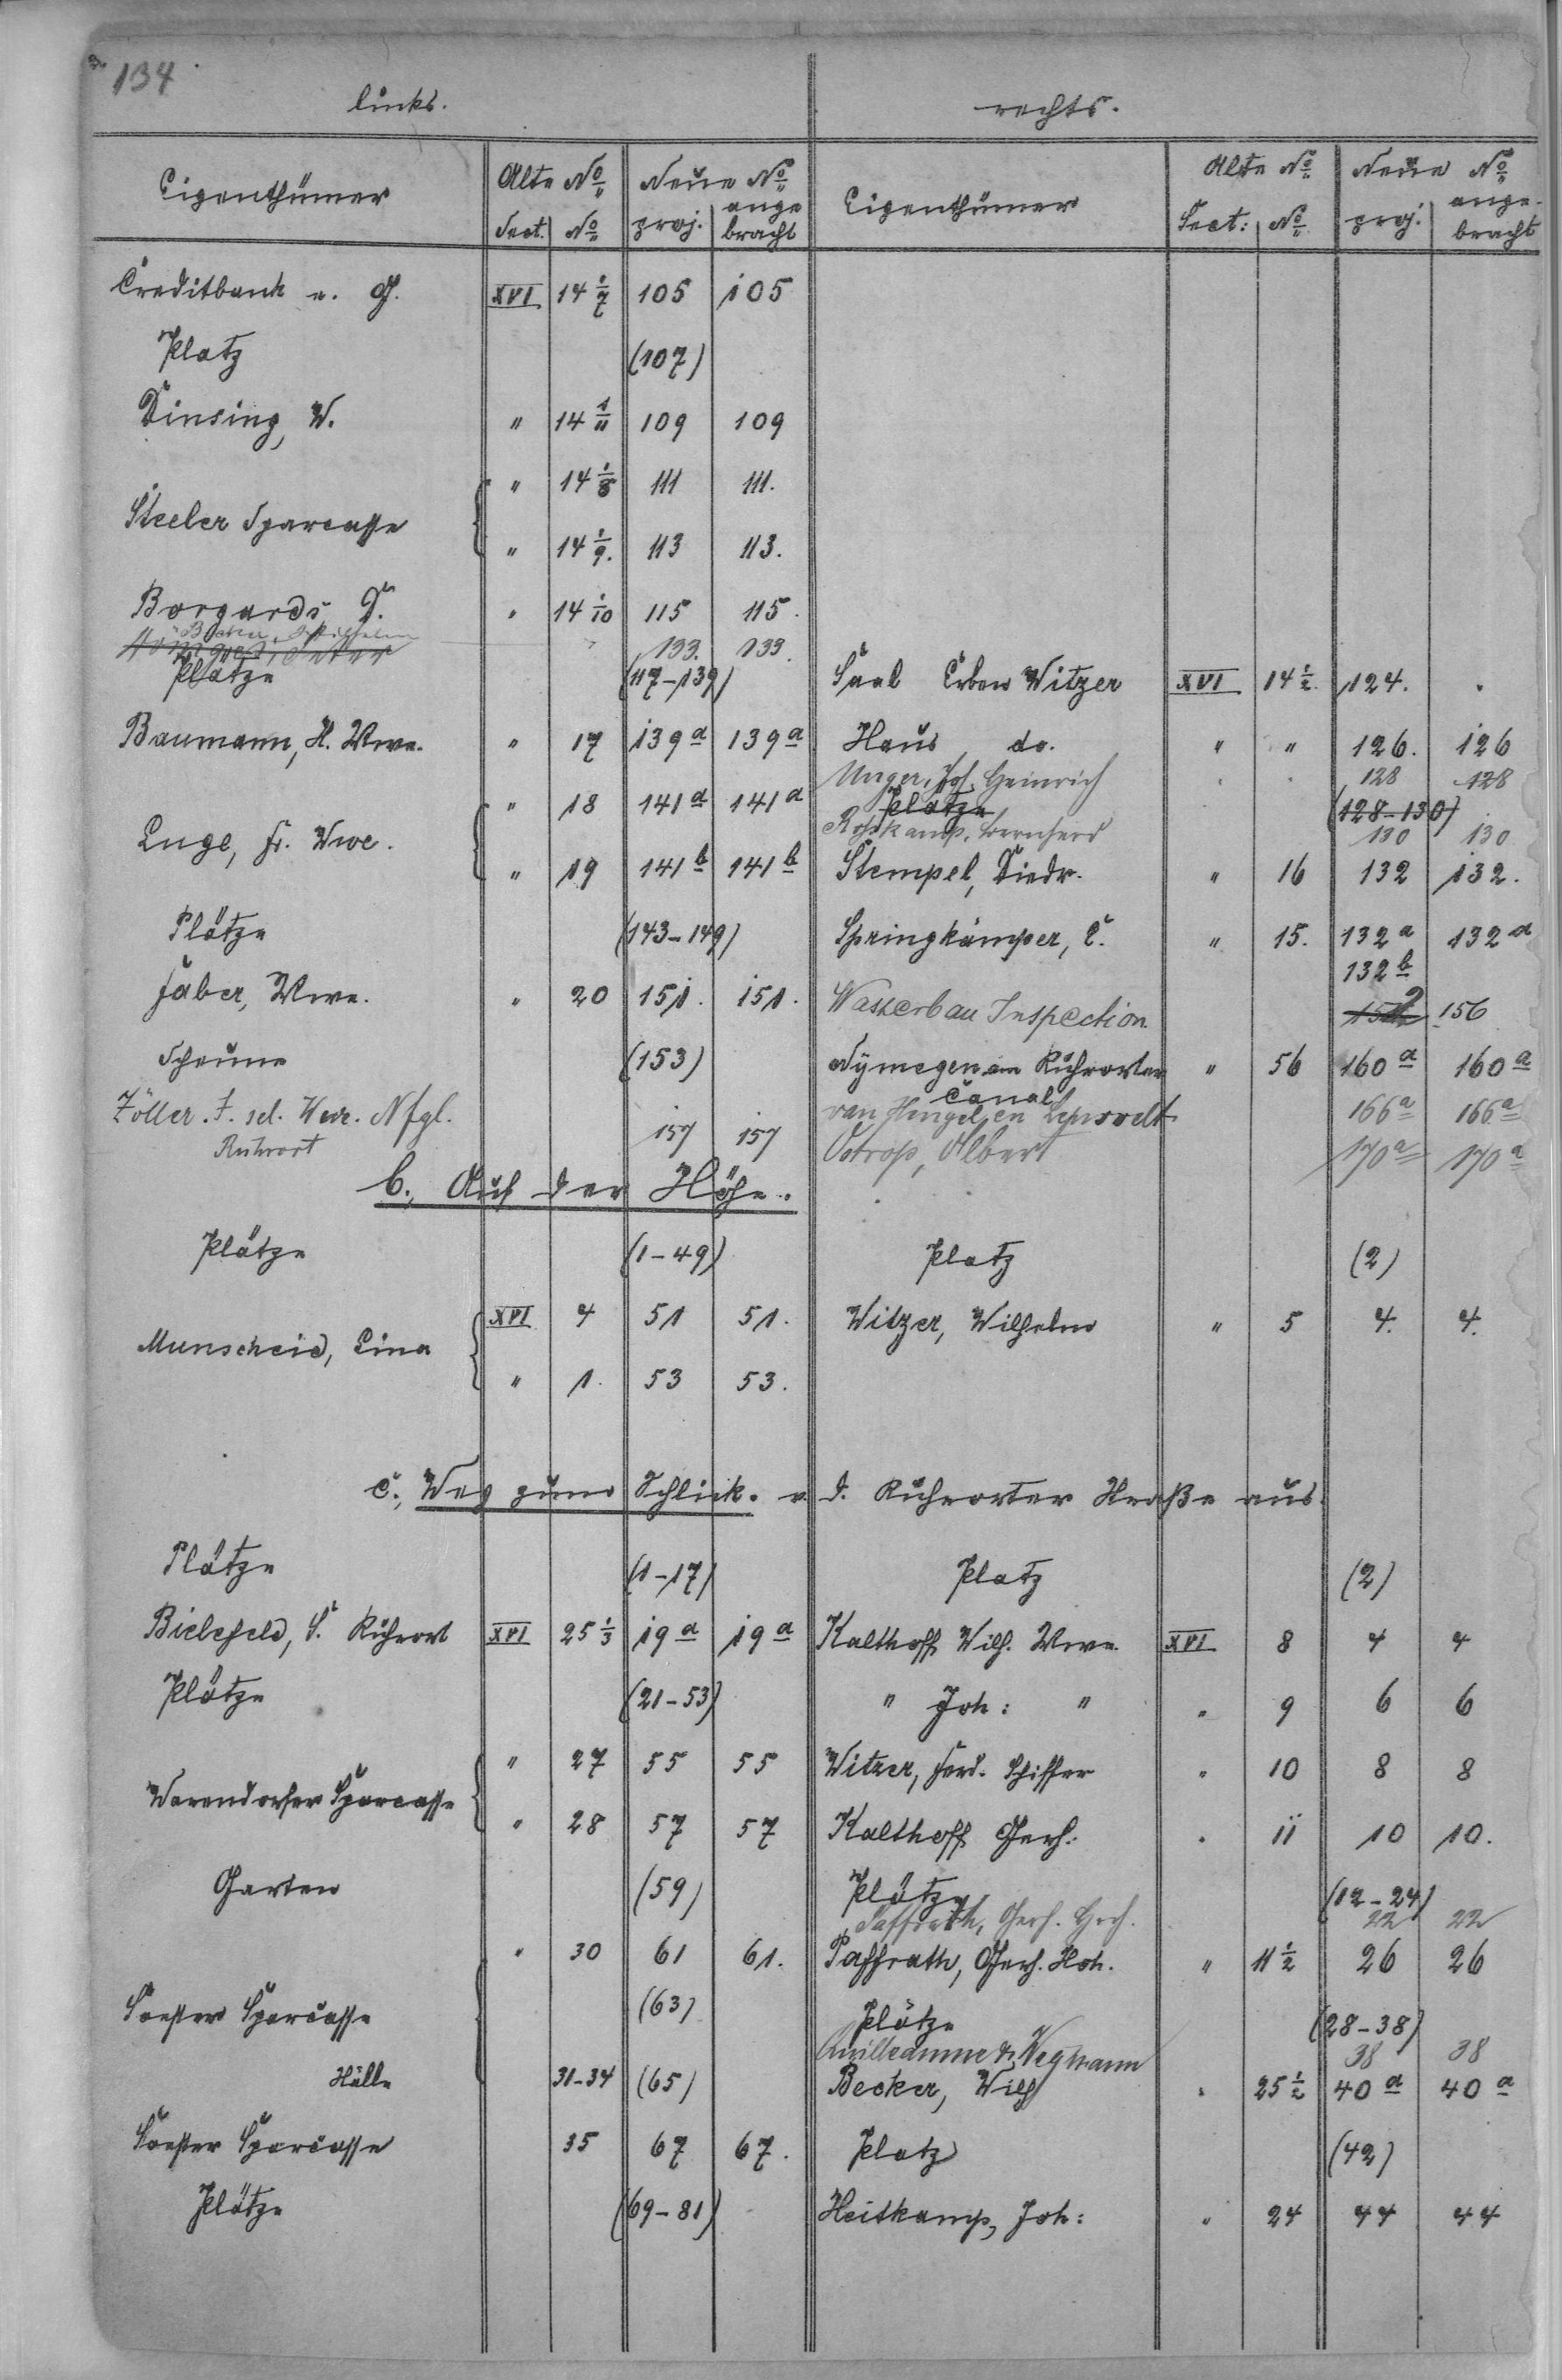 134
links. rechts.
Eigenthümer Alte No Neue No Eigenthümer Alte No Neue No
Sect. No proj. ange bracht Sect: No proj. ange- bracht
Creditbank e. G. XVI 14 1/7 105 105
Platz (107)
Dinsing, W. " 14 1/11 109 109
" 14 1/8 111 111.
Steeler Sparcasse
" 14 1/9. 113 113.
Borgards D. " 14 1/10 115 115.
Wilhelm 133. 133.
Plätze (117-139) Saal Erben Witzer XVI 14 1/2. 124.
Baumann, H. Wwe. " 17 139a 139a Haus do. " " 126. 126
Unger, Joh. Heinrich 128 128
" 18 141a 141a Plätze (128-130)
Luge, Fr. Wwe. Roßkamp, Bernhard 130 130
" 19 141b 141b Stempel, Diedr. " 16 132 132.
Plätze (143-149) Springkämper, E. " 15. 132a 132a
132b
Faber, Wwe. " 20 151. 151. Wasserbau Inspection 156
Scheune (153) Nymegen am Ruhrorter " 56 160a 160a
Canal
Zöller. F. sel. Wwe. Nfgl. 157 157 van Hengel en 166a 166a
Ruhrort Ostrop, Albert 170a 170a
b., Auf der Höhe.
Plätze (1-49) Platz (2)
XVI 4 51 51. Witzer, Wilhelm " 5 4. 4.
Munscheid, Lina
" 1. 53 53.
c., Weg zum Schlick. v. d. Ruhrorter Straße aus.
Plätze (1-17) Platz (2)
Bielefeld, S. Ruhrort XVI 25 1/3 19a 19a Kalthoff Wilh. Wwe. XVI 8 4 4
Plätze (21-53) " Joh: " " 9 6 6
" 27 55 55 Witzer, Ferd. Schiffer " 10 8 8
Warendorfer Sparcasse
" 28 57 57 Kalthoff Gerh: " 11 10 10.
Garten (59) Plätze (12-24)
Paffrath, Gerh. Hch. 22 22
" 30 61 61. Paffrath, Gerh. Hch. " 11 1/2 26 26
Soester Sparcasse (63) Plätze (28-38)
& Wegmann 38 38
Hälle 31-34 (65) Becker, Wilh " 25 1/2 40a 40a
Soester Sparcasse 35 67 67. Platz (42)
Plätze (69-81) Heitkamp, Joh: " 24 44 44